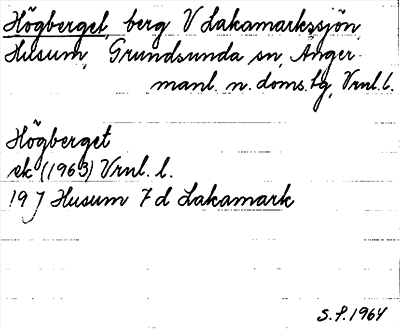 Högberget, berg V Lakamarkssjön
Husum, Grundsunda sn, Ånger-
manl. n. doms.tg, Vrnl. l.
Högberget
ek (1963) Vrnl. l.
19 J Husum 7 d Lakamark
S.F. 1964